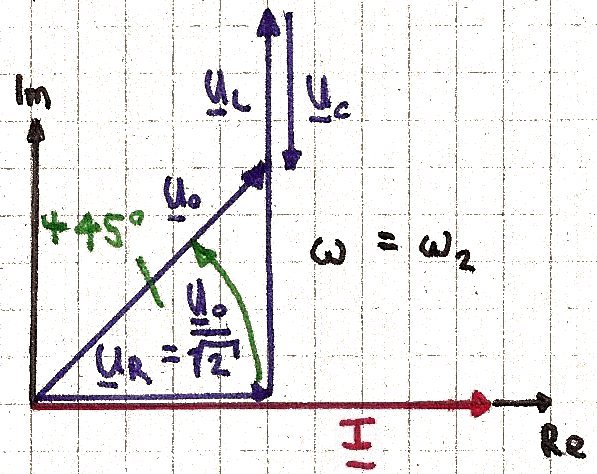 Im
u_L
u_C
u_0
+45°
ω = ω₂
u_R = u_0/√2
I
Re